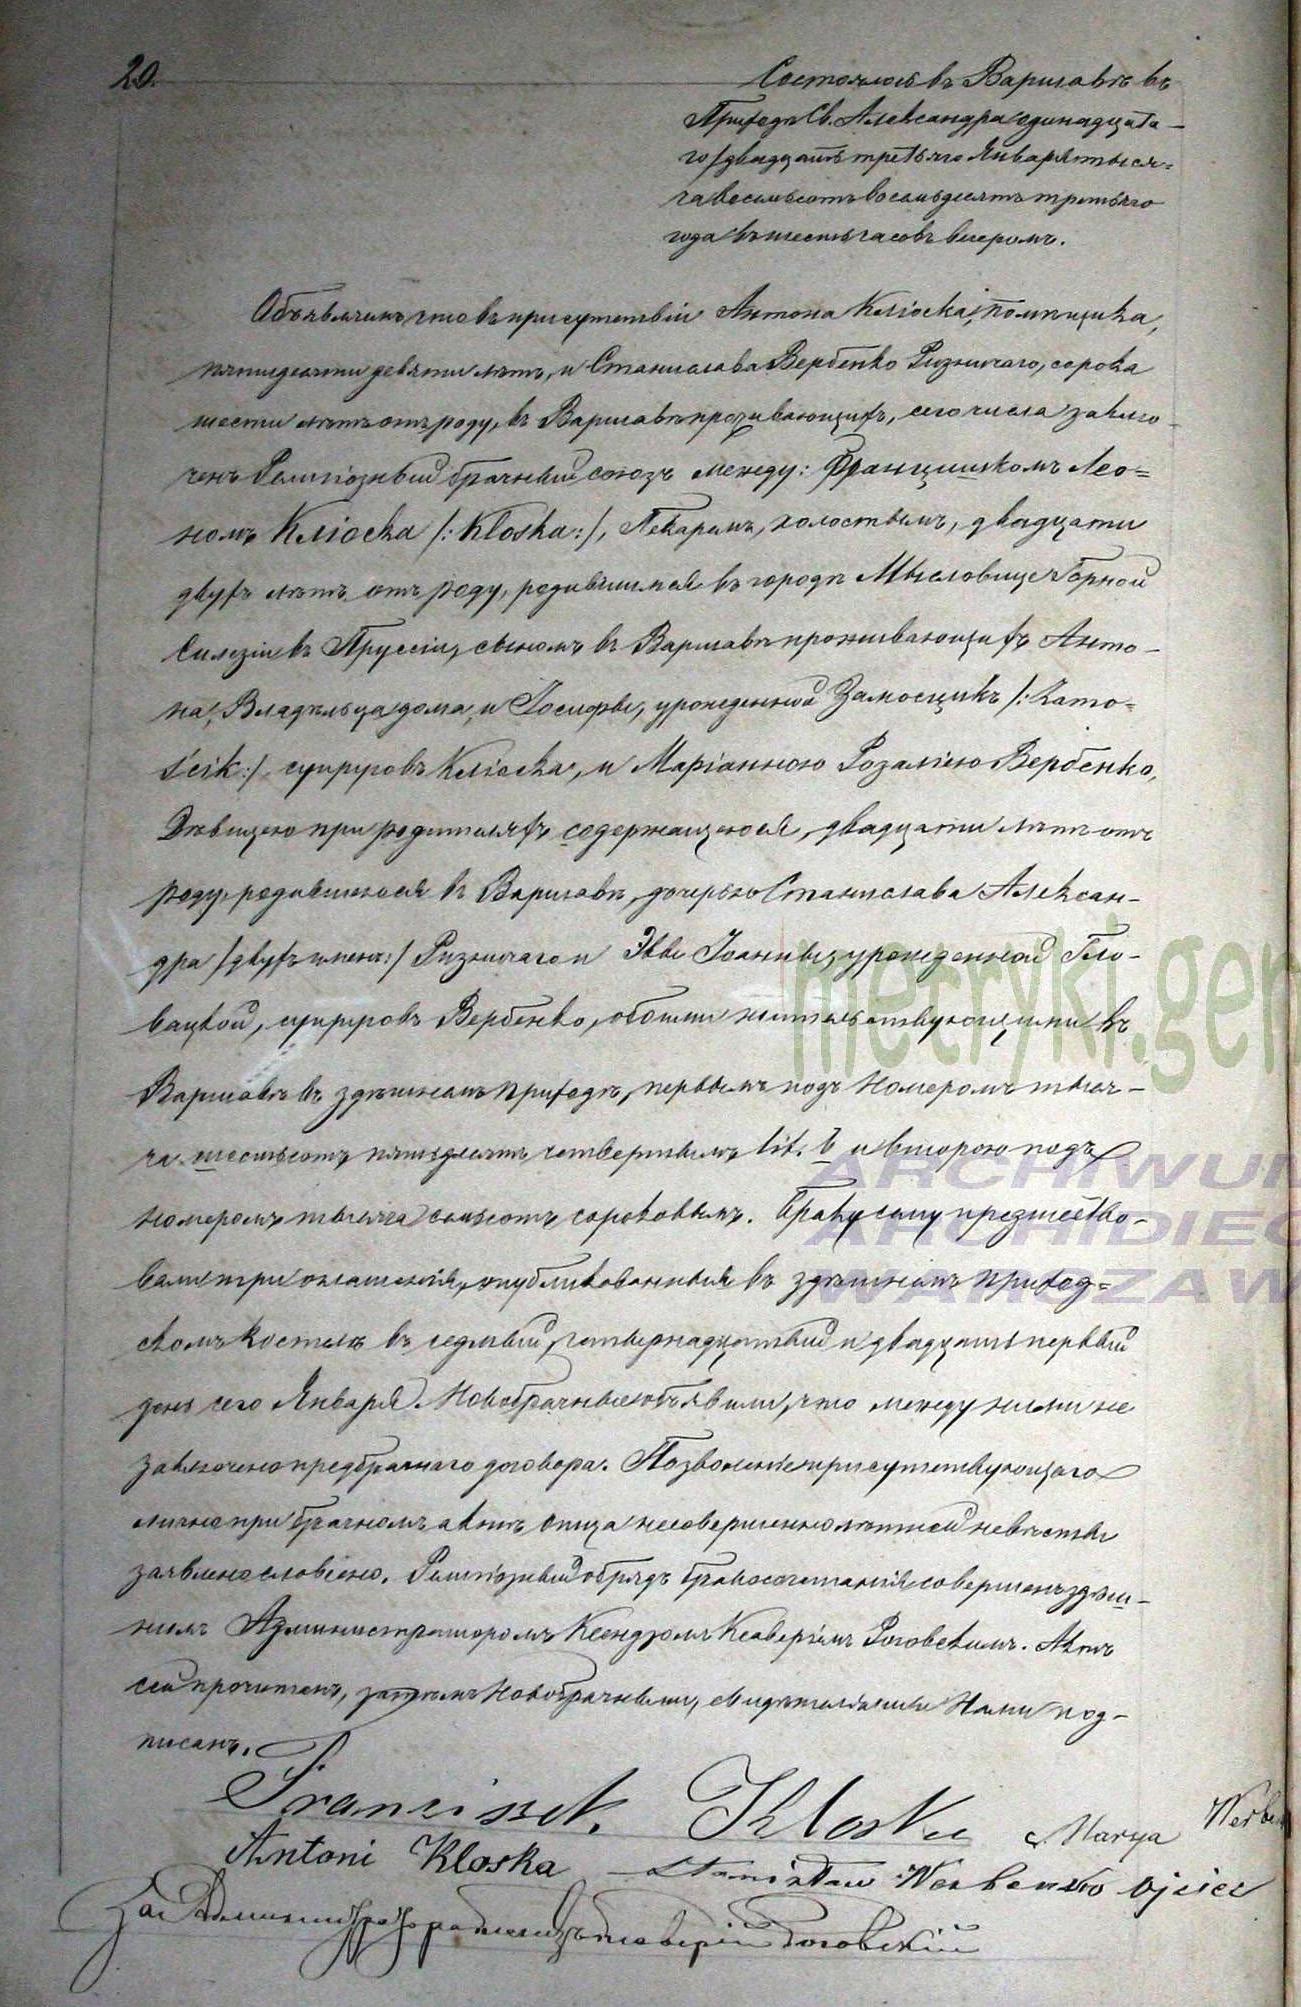 20.
Состоялось въ Варшавѣ въ
Приходѣ Св. Александра одинадцата-
го/двадцать третьяго Января тыся-
ча восемьсотъ восемьдесятъ третьяго
года въ шесть часовъ вечеромъ.
Объявляемъ, что въ присутствіи Антона Кліоска, помѣщика,
пятидесяти девяти лѣтъ, и Станислава Вербенко Ризничаго, сорока
шести лѣтъ отъ роду, въ Варшавѣ проживающихъ, сего числа заклю-
ченъ Религіозный брачный союзъ между: Францишкомъ Лео-
номъ Кліоска /:Kloska:/, Пекаремъ, холостымъ, двадцати
двухъ лѣтъ отъ роду, родившимся въ городѣ Мысловице Горной
Силезіи въ Пруссіи, сыномъ въ Варшавѣ проживающихъ Анто-
на, Владѣльца дома, и Іосифы, урожденной Замосцикъ /:Zamo-
ścik:/ супруговъ Кліоска, и Маріанною Розаліею Вербенко,
Дѣвицею при родителяхъ содержащеюся, двадцати лѣтъ отъ
роду, родившеюся въ Варшавѣ, дочерью Станислава Алексан-
дра /двухъ именъ:/ Ризничаго и Эвы Іоанны, урожденной Гло-
вацкой, супруговъ Вербенко, обоими жительствующими въ
Варшавѣ въ здѣшнемъ приходѣ, первымъ подъ Номеромъ тыся-
ча шестьсотъ пятьдесятъ четвертымъ lit. b и второю подъ
номеромъ тысяча семьсотъ сороковымъ. Браку сему предшество-
вали три оглашенія, опубликованныя въ здѣшнемъ приход-
скомъ костелѣ въ седьмый, четырнадцатый и двадцать первый
день сего Января. Новобрачные объявили, что между ними не
заключено предбрачнаго договора. Позволеніе присутствующаго
лично при брачномъ актѣ отца несовершеннолѣтней невѣсты
заявлено словесно. Религіозный обрядъ бракосочетанія совершенъ здѣш-
нимъ Администраторомъ Ксендзомъ Ксаверіемъ Роговскимъ. Актъ
сей прочитанъ, затѣмъ Новобрачными, свидѣтелями и Нами под-
писанъ.
Franciszek Kloska Marya Werben
Antoni Kloska Stanisław Werbenko ojciec
За Администратора Ксаверій Роговскій
metryki.gen
ARCHIWUM
ARCHIDIEC
WARSZAW